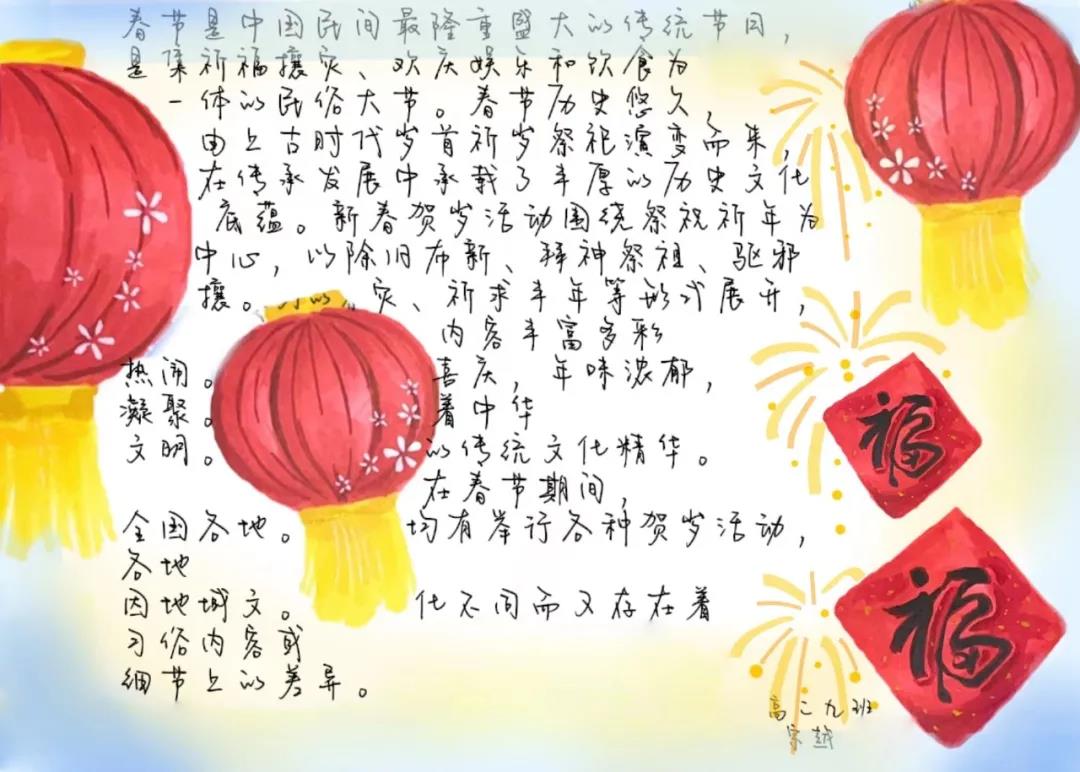 春节是中国民间最隆重盛大的传统节日，
是集祈福攘灾、欢庆娱乐和饮食为
一体的民俗大节。春节历史悠久，
由上古时代岁首祈岁祭祀演变而来，
在传承发展中承载了丰厚的历史文化
底蕴。新春贺岁活动围绕祭祝祈年为
中心，以除旧布新、拜神祭祖、驱邪
攘。灾、祈求丰年等形式展开，
内容丰富多彩
热闹。喜庆，年味浓郁，
凝聚。着中华
文明。的传统文化精华。
在春节期间，
全国各地。均有举行各种贺岁活动，
各地
因地域文。化不同而又存在着
习俗内容或
细节上的差异。
福
福
高二九班
宋越